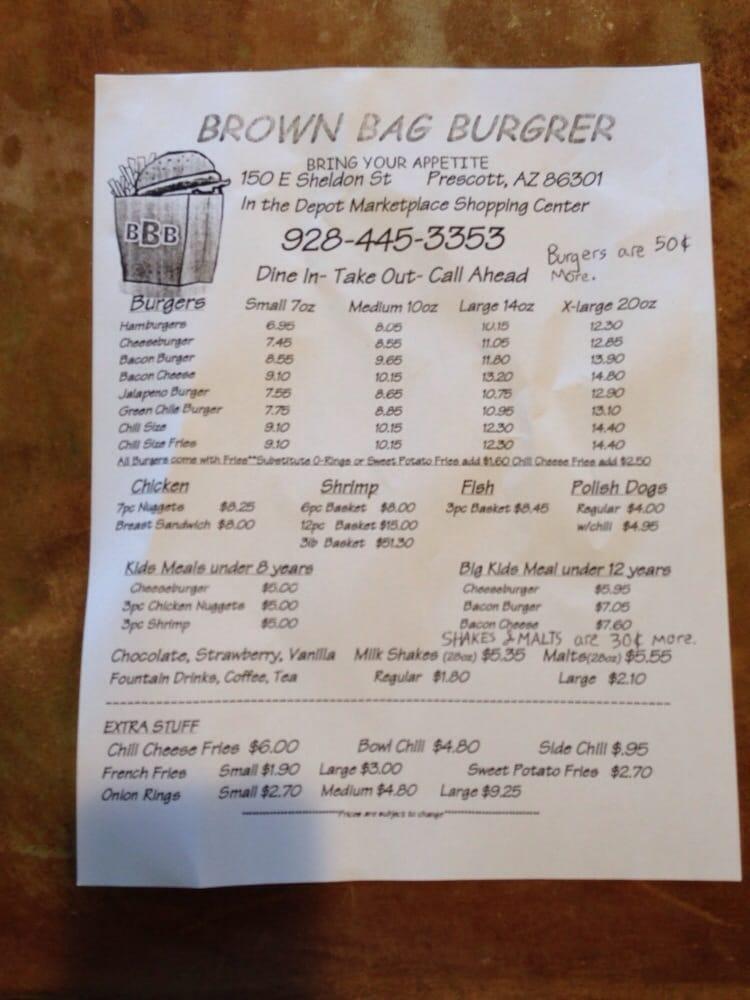 BROWN BAG BURGRER
BRING YOUR APPETITE
150 E Sheldon St Prescott, AZ 86301
In the Depot Marketplace Shopping Center
BBB
928-445-3353
Burgers are 50¢
More.
Dine In- Take Out- Call Ahead
Burgers Small 7oz Medium 10oz Large 14oz X-large 20oz
Hamburgers 6.95 8.05 10.15 12.30
Cheeseburger 7.45 8.55 11.05 12.85
Bacon Burger 8.55 9.65 11.80 13.90
Bacon Cheese 9.10 10.15 13.20 14.80
Jalapeno Burger 7.55 8.65 10.75 12.90
Green Chile Burger 7.75 8.85 10.95 13.10
Chili Size 9.10 10.15 12.30 14.40
Chili Size Fries 9.10 10.15 12.30 14.40
All Burgers come with Fries**Substitute O-Rings or Sweet Potato Fries add $1.60 Chili Cheese Fries add $2.50
Chicken Shrimp Fish Polish Dogs
7pc Nuggets $8.25 6pc Basket $8.00 3pc Basket $8.45 Regular $4.00
Breast Sandwich $8.00 12pc Basket $15.00 w/chili $4.95
3lb Basket $51.30
Kids Meals under 8 years Big Kids Meal under 12 years
Cheeseburger $5.00 Cheeseburger $5.95
3pc Chicken Nuggets $5.00 Bacon Burger $7.05
3pc Shrimp $5.00 Bacon Cheese $7.60
SHAKES & MALTS are 30¢ more.
Chocolate, Strawberry, Vanilla Milk Shakes (28oz) $5.35 Malts(28oz) $5.55
Fountain Drinks, Coffee, Tea Regular $1.80 Large $2.10
EXTRA STUFF
Chili Cheese Fries $6.00 Bowl Chili $4.80 Side Chili $.95
French Fries Small $1.90 Large $3.00 Sweet Potato Fries $2.70
Onion Rings Small $2.70 Medium $4.80 Large $9.25
Prices are subject to change